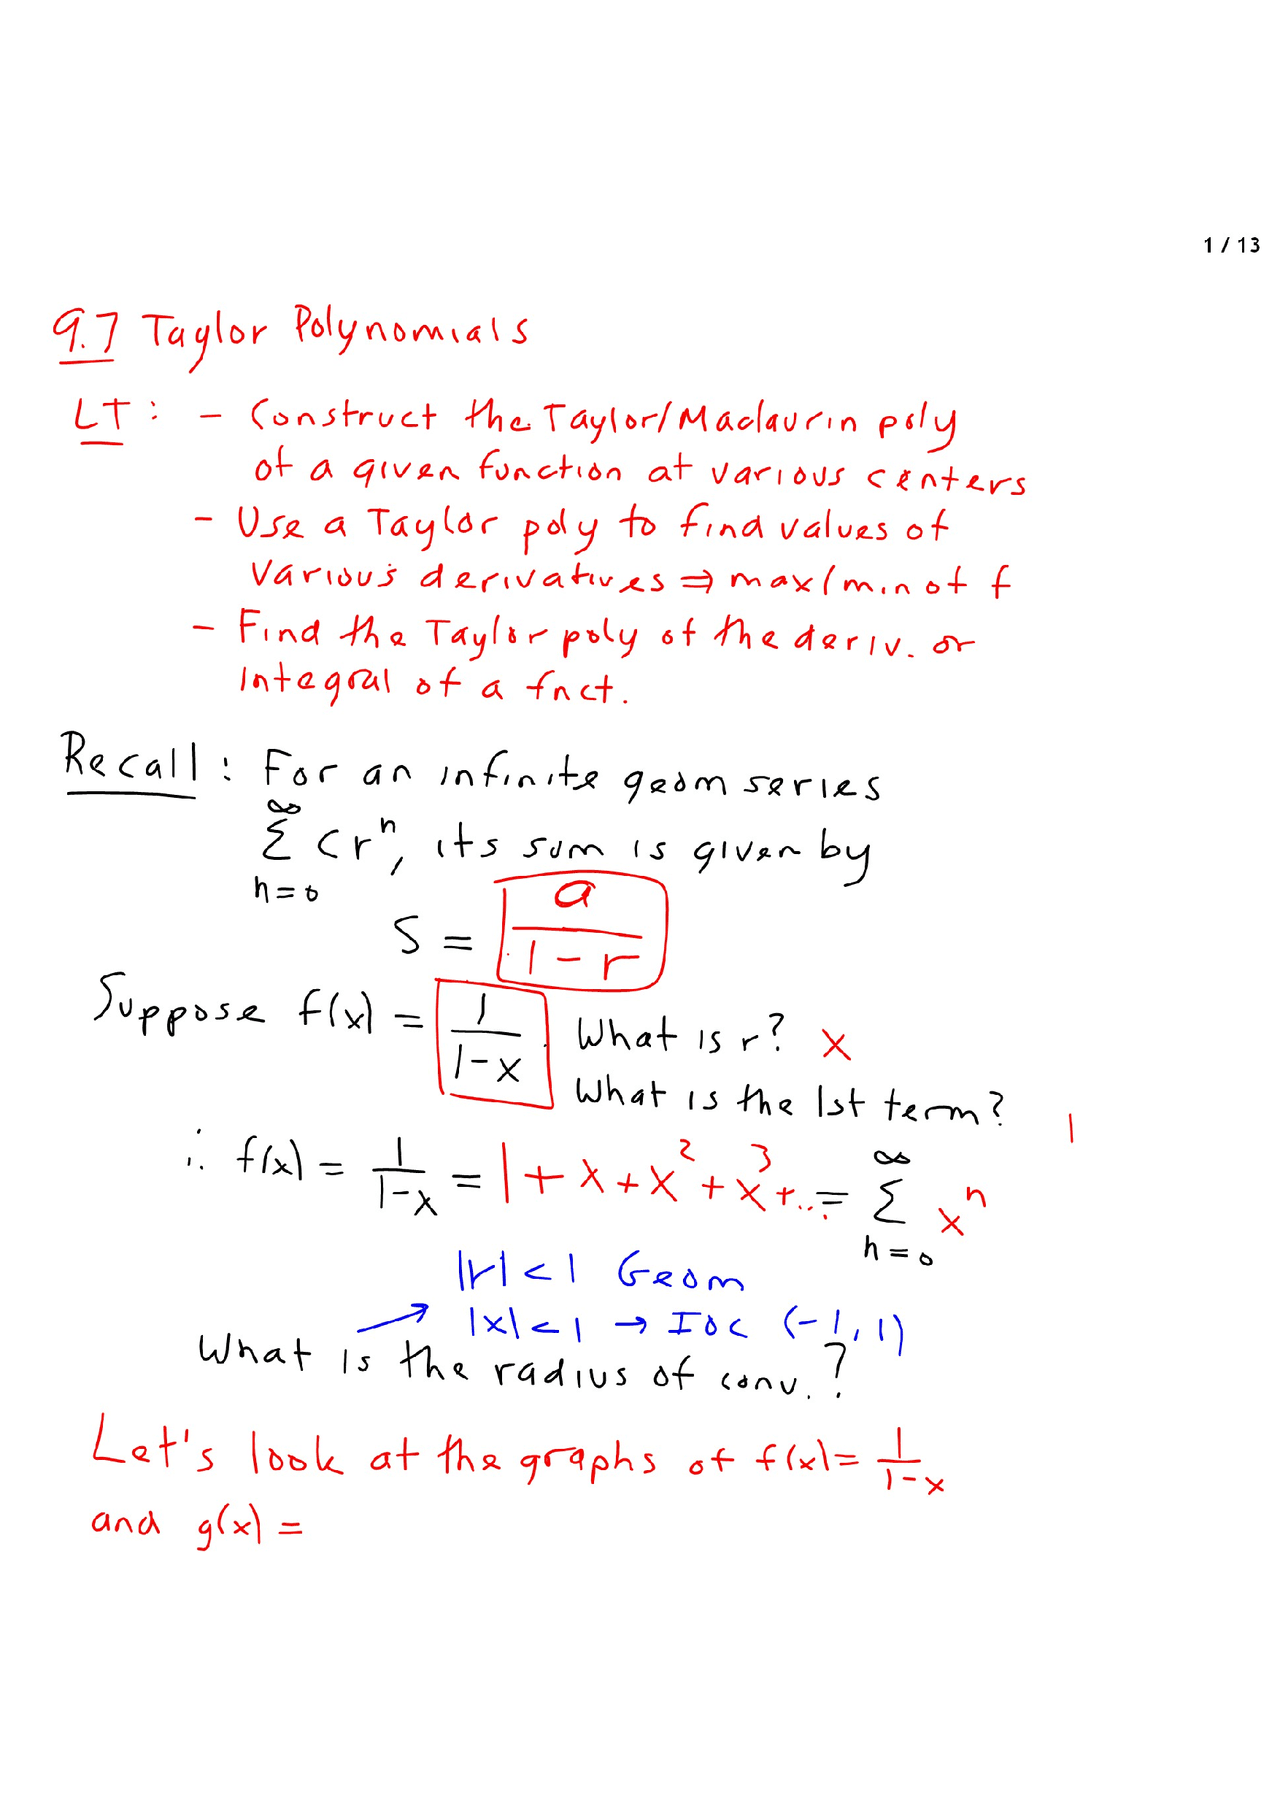 1 / 13
9.7 Taylor Polynomials
LT : - Construct the Taylor/Maclaurin poly
of a given function at various centers
- Use a Taylor poly to find values of
various derivatives ⇒ max/min of f
- Find the Taylor poly of the deriv. or
integral of a fnct.
Recall : For an infinite geom series
∞
Σ c rⁿ, its sum is given by
n=0
S = a/(1-r)
Suppose f(x) = 1/(1-x). What is r? x
What is the 1st term? 1
∴ f(x) = 1/(1-x) = 1 + x + x² + x³ + ... = Σ xⁿ
n=0 ∞
|r| < 1 Geom
|x| < 1 → IOC (-1, 1)
What is the radius of conv.?
Let's look at the graphs of f(x) = 1/(1-x)
and g(x) =